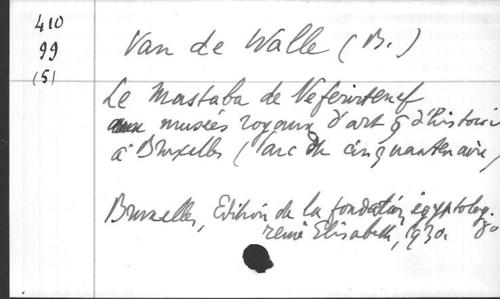 410
99
(5)
Van de Walle (B.)
Le Mastaba de Neferirtenef
aux musées royaux d'art & d'histoire
à Bruxelles (Parc du cinquantenaire)
Bruxelles, Edition de la fondation égyptolog.
reine Elisabeth, 1930. 8o